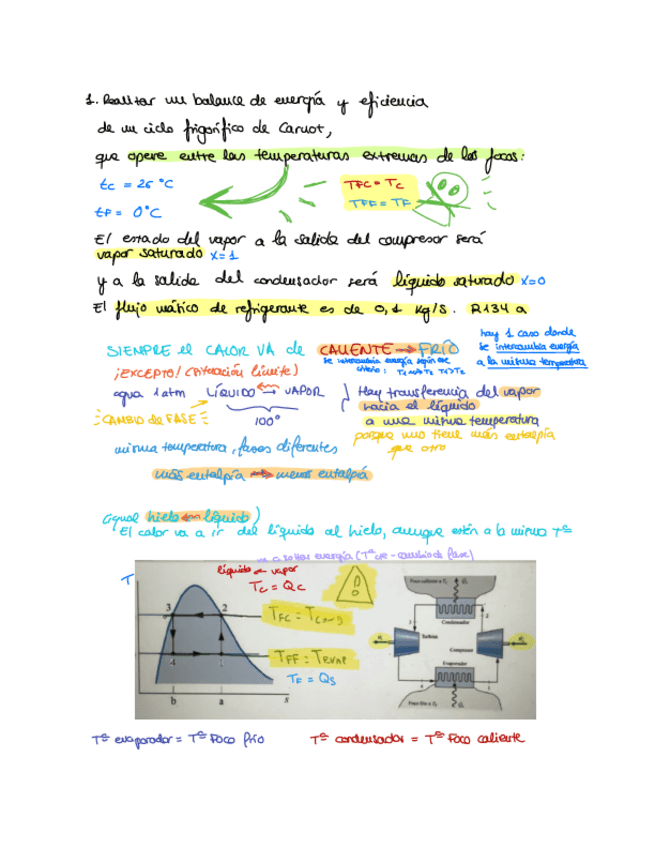 1. Realizar un balance de energía y eficiencia
de un ciclo frigorífico de Carnot,
que opere entre las temperaturas extremas de los focos:
tc = 26 °C
TFC = TC
tF = 0°C
TFF = TF
El estado del vapor a la salida del compresor será
vapor saturado x=1
y a la salida del condensador será líquido saturado x=0
El flujo mático de refrigerante es de 0,1 kg/s. R134 a
hay 1 caso donde
se intercambia energía
a la misma temperatura
SIEMPRE el CALOR VA de CALIENTE → FRÍO
se intercambia energía según ese
criterio:
¡EXCEPTO! (situación límite)
agua 1 atm LÍQUIDO → VAPOR
100°
CAMBIO de FASE
Hay transferencia del vapor
hacia el líquido
a una misma temperatura
porque uno tiene más entalpía
que otro
misma temperatura, fases diferentes
más entalpía → menos entalpía
(igual hielo líquido)
El calor va a ir del líquido al hielo, aunque estén a la misma Tª
va a soltar energía (Tª de cambio de fase)
líquido ← vapor
TC = QC
T
3 2
TFC =
4 1
TFF = TEVAP
TF = QS
b a
s
Foco caliente a
Condensador
Turbina
Compresor
Evaporador
Foco frío a
Tª evaporador = Tª Foco frío
Tª condensador = Tª Foco caliente